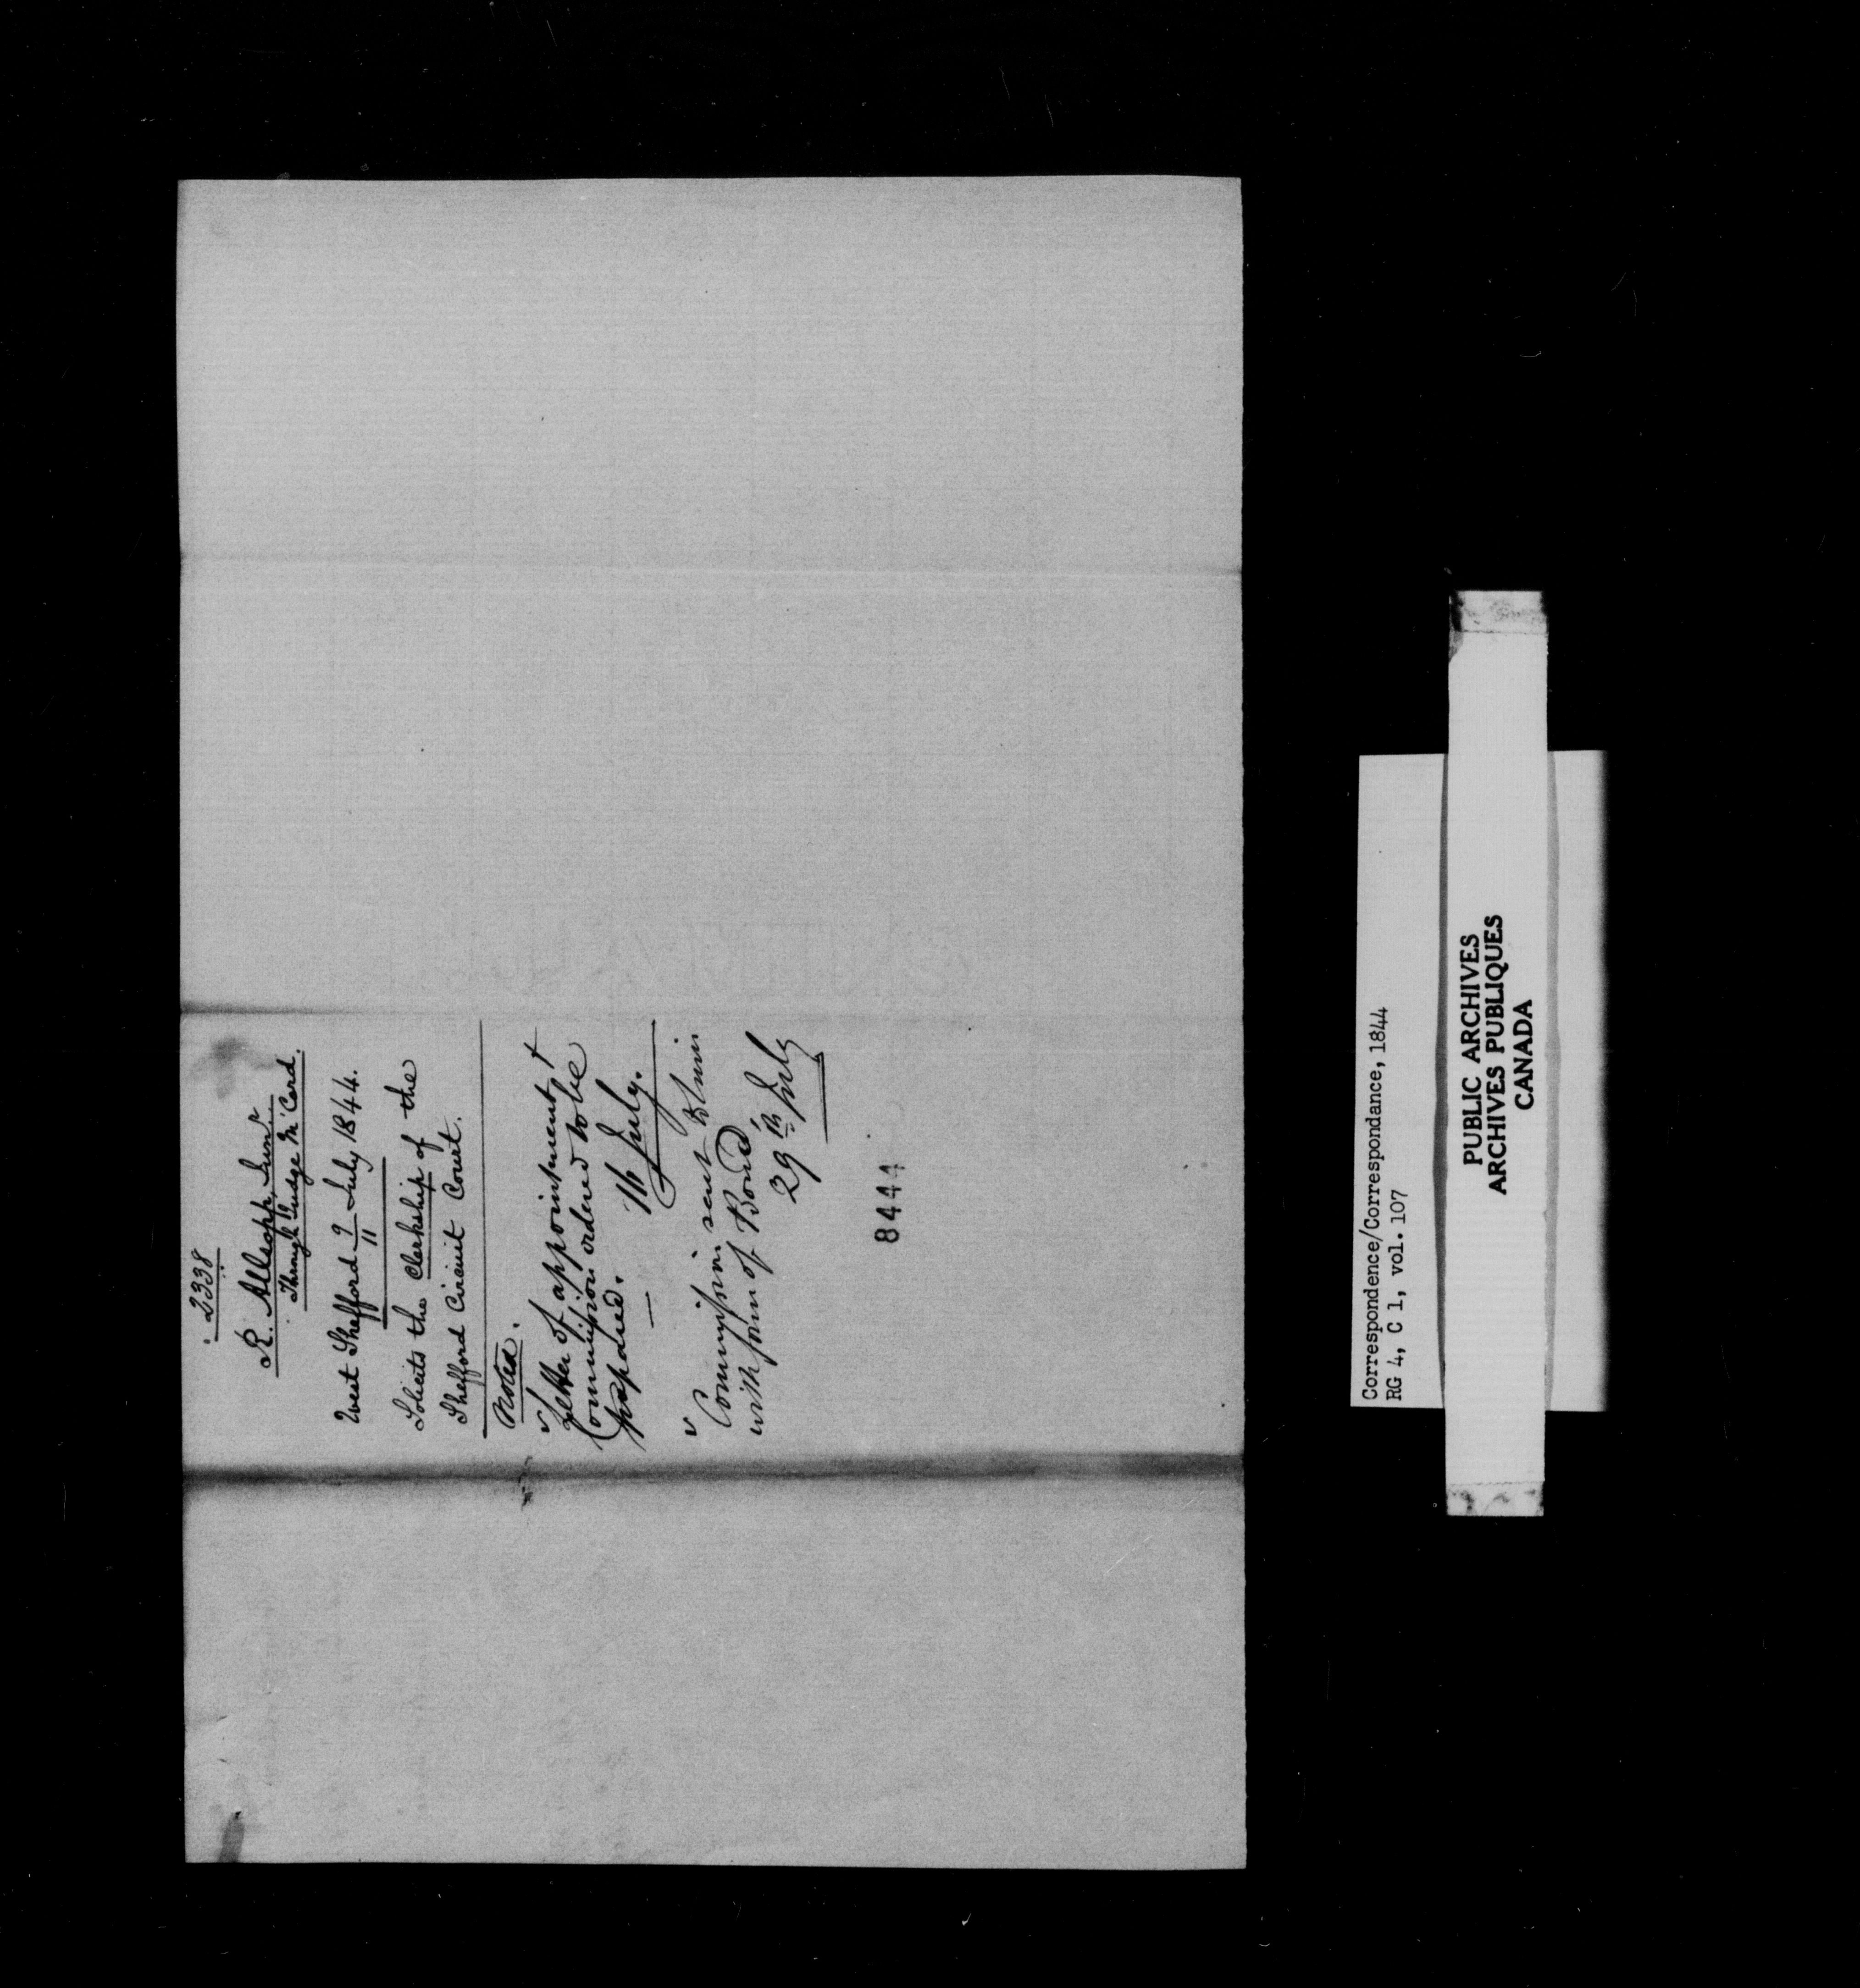 2338
R. Allsopp, Junr.
Through Judge Mc Cord.
West Shefford 9/11 July 1844.
Solicits the Clerkship of the
Shefford Circuit Court.
Noted.
Letter of appointment &
Commission ordered to be
prepared.
16 July.
Commission sent
with form of Bond,
29th July
8444
Correspondence/Correspondance, 1844
RG 4, C 1, vol. 107
PUBLIC ARCHIVES
ARCHIVES PUBLIQUES
CANADA